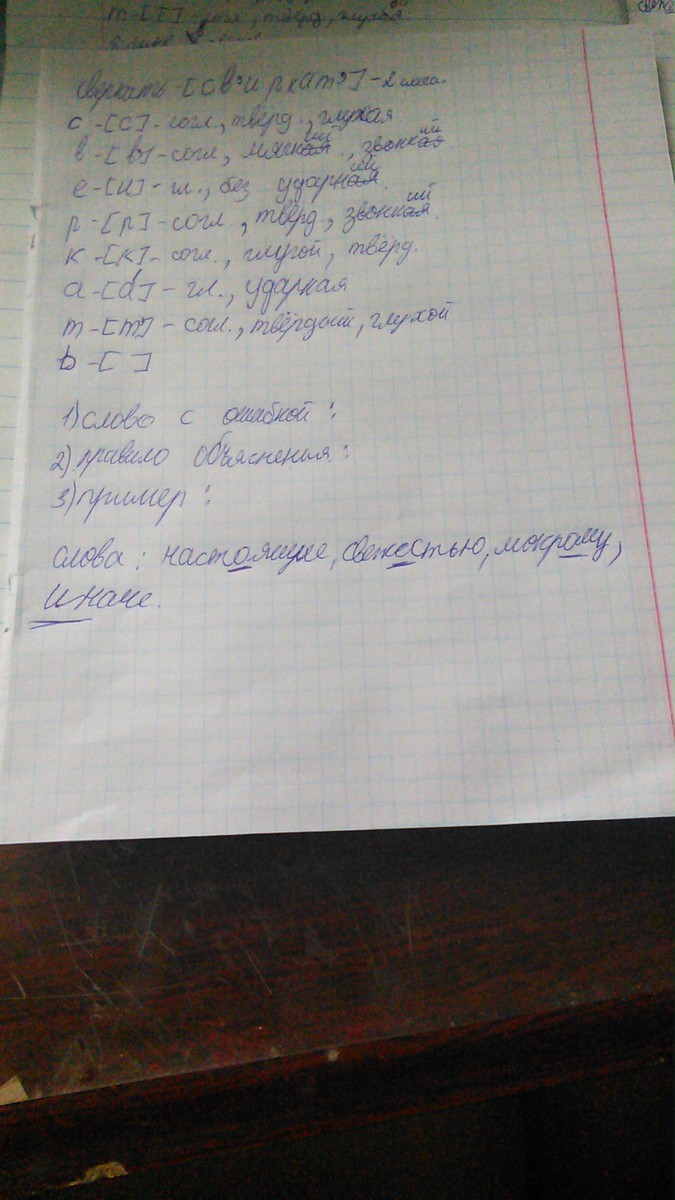 т-[т]-согл, твёрд, глухой
сверкать-[св'иркат']-2 слога.
с-[с]-согл., твёрд., глухая
в-[в']-согл, мягкая ий, звонкая ий
е-[и]-гл., без ударная ый.
р-[р]-согл, твёрд, звонкая ий.
к-[к]-согл., глухой, твёрд.
а-[а́]-гл., ударная
т-[т']-согл., твёрдый, глухой
ь-[ ]
1) слово с ошибкой:
2) правило объясненья:
3) пример:
слова: настоящие, свежестью, мокрому,
иначе.